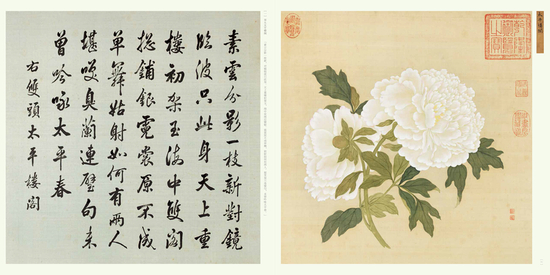 素雲分影一枝新對鏡
臨波只此身天上重
樓初架玉海中雙閣
總鋪銀霓裳原不成
單舞姑射如何有兩人
堪笑臭蘭連璧句未
曾吟詠太平春
右雙頭太平樓閣